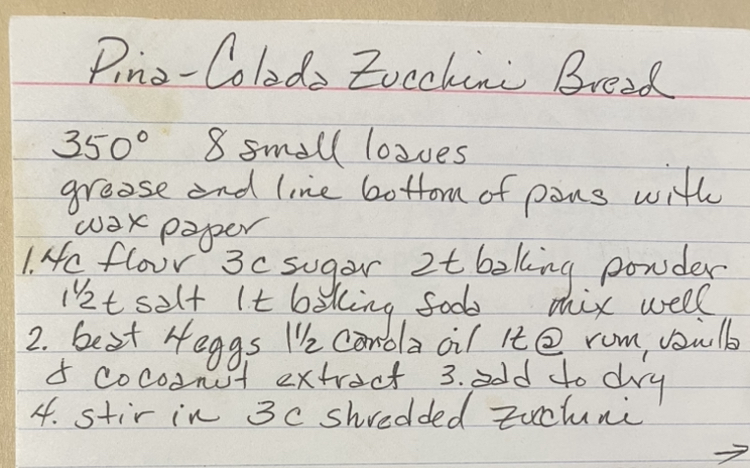 Pina-Colada Zucchini Bread
350° 8 small loaves
grease and line bottom of pans with
wax paper
1. 4c flour 3c sugar 2t baking powder
1½ t salt 1t baking soda mix well
2. beat 4 eggs 1½ canola oil 1t @ rum, vanilla
& cocoanut extract 3. add to dry
4. stir in 3c shredded zuchini
→